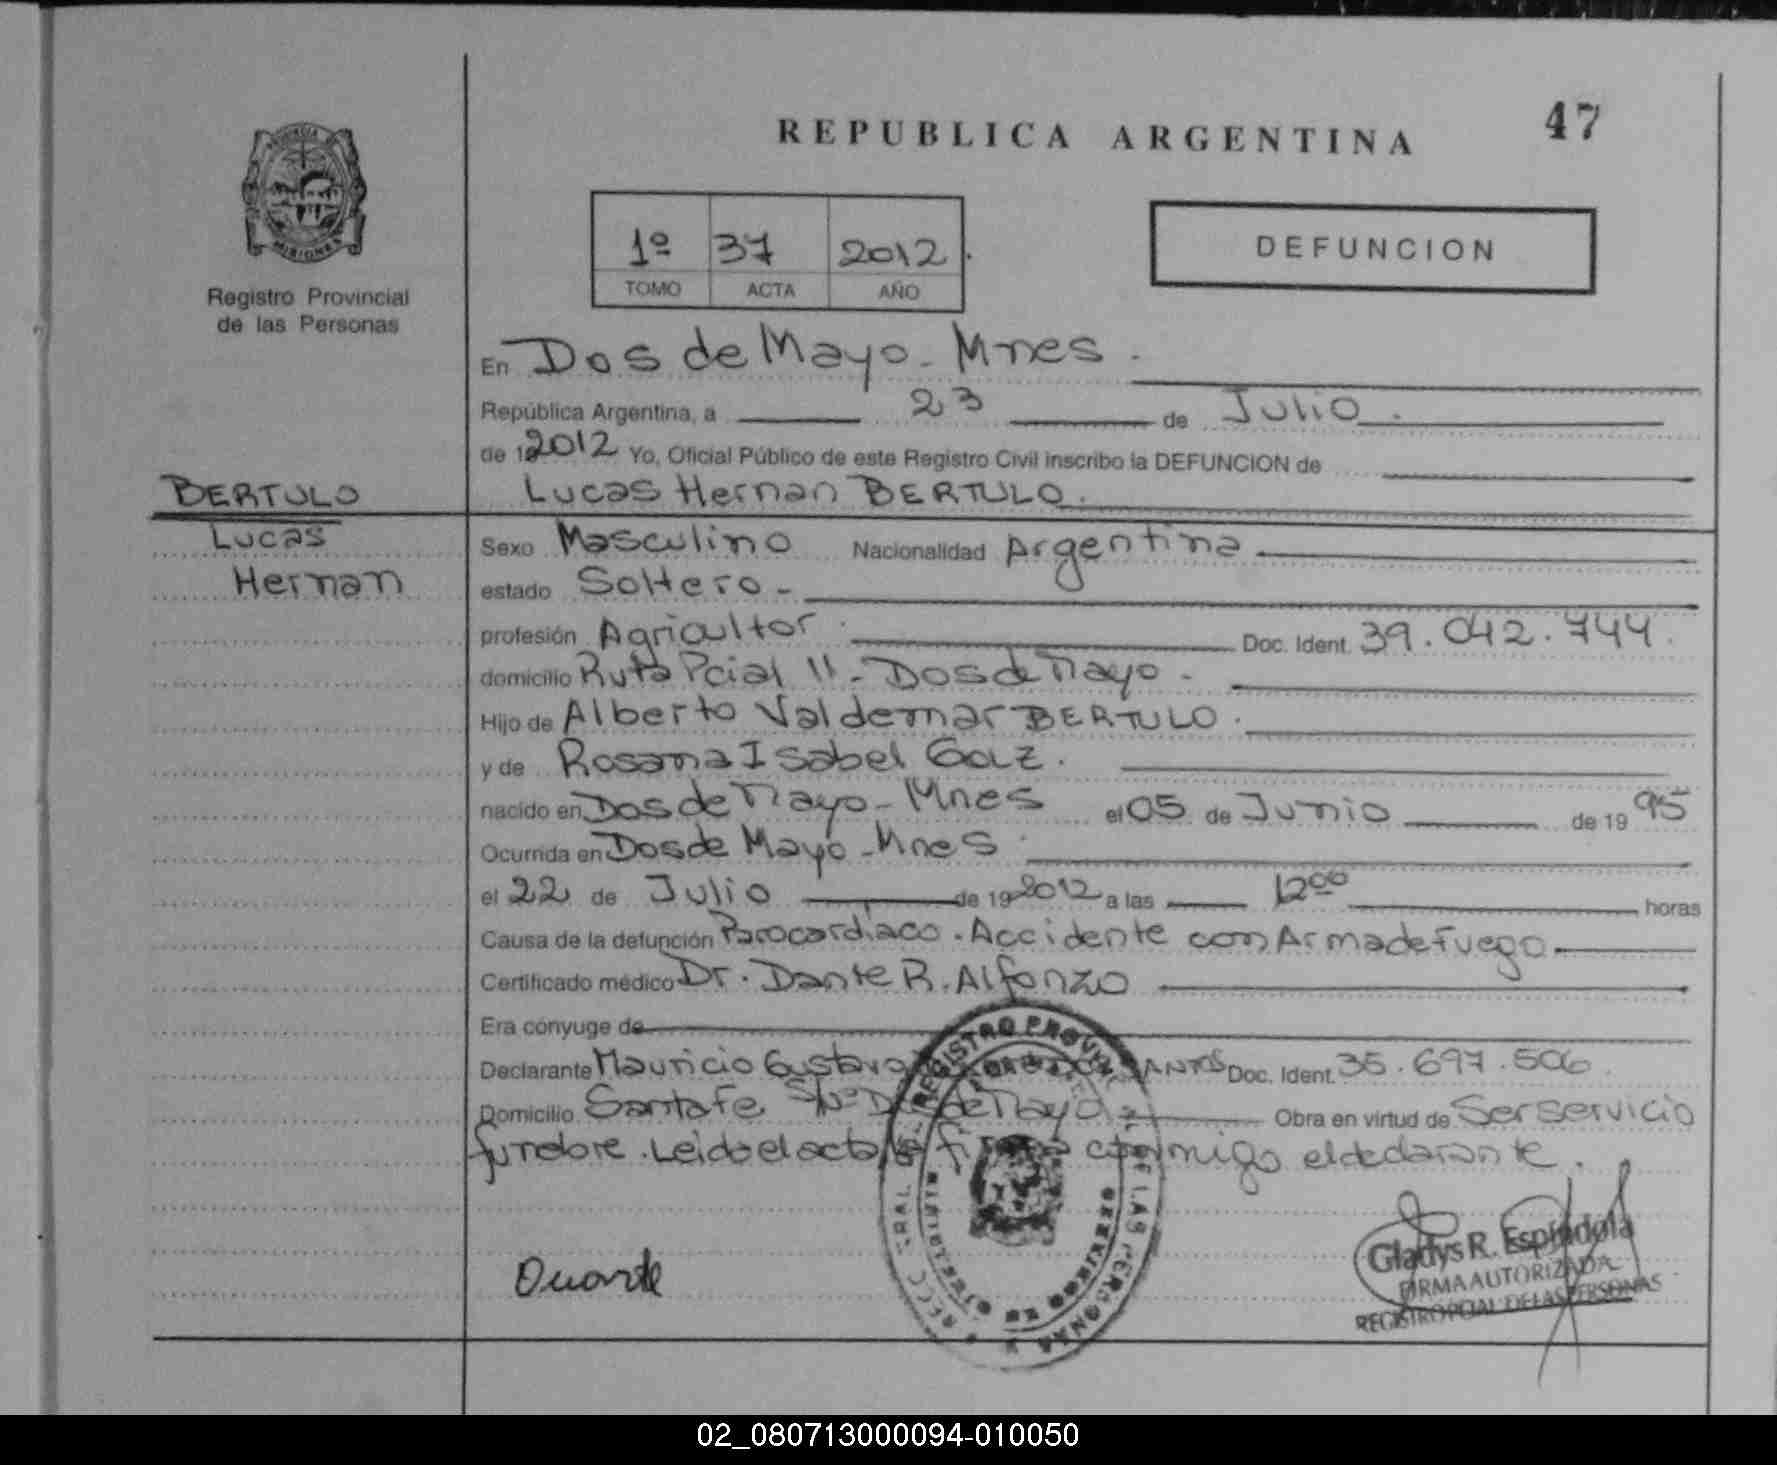 REPUBLICA ARGENTINA
47
PROVINCIA
MISIONES
Registro Provincial
de las Personas
1º 37 2012
TOMO ACTA AÑO
DEFUNCION
En Dos de Mayo - Mnes.
República Argentina, a 23 de Julio.
de 19 2012 Yo, Oficial Público de este Registro Civil inscribo la DEFUNCION de
Lucas Hernan BERTULO.
BERTULO
Lucas
Hernan
Sexo Masculino Nacionalidad Argentina
estado Soltero -
profesión Agricultor. Doc. Ident. 39.042.744.
domicilio Ruta Pcial 11 - Dos de Mayo -
Hijo de Alberto Valdemar BERTULO.
y de Rosana Isabel Gaz.
nacido en Dos de Mayo - Mnes el 05 de Junio de 19 95
Ocurrida en Dos de Mayo - Mnes
el 22 de Julio de 19 2012 a las 12 00 horas
Causa de la defunción Parocardiaco. Accidente con Arma de Fuego
Certificado médico Dr. Dante R. Alfonzo
Era cónyuge de
Declarante Mauricio Gustavo Doc. Ident. 35.697.506.
Domicilio Santa Fe S/Nº Dos de Mayo Obra en virtud de Ser servicio
funebre. Leido el acta la firma conmigo el declarante.
REGISTRO PROVINCIAL DE LAS PERSONAS
Duarte
Gladys R. Espindola
FIRMA AUTORIZADA
REGISTRO PCIAL DE LAS PERSONAS
02_080713000094-010050